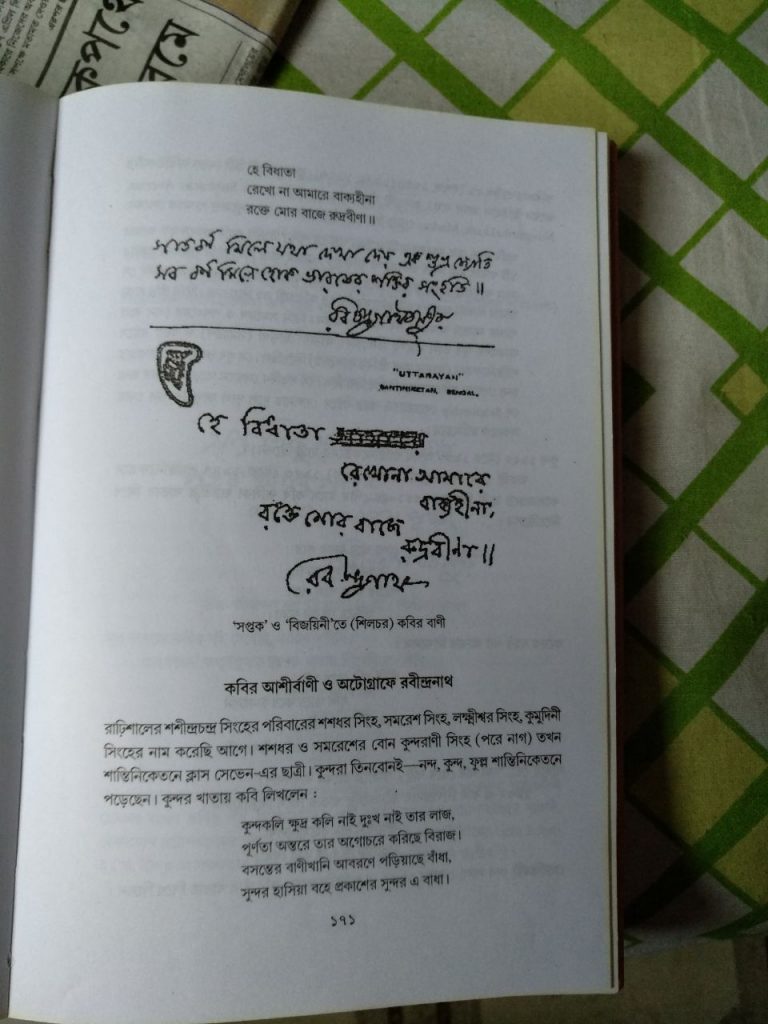 হে বিধাতা
রেখো না আমারে বাক্যহীনা
রক্তে মোর বাজে রুদ্রবীণা॥
সাতবর্ণ মিলে যথা দেখা দেয় এক শুভ্র জ্যোতি
সব বর্ণ মিলে হোক ভারতের শক্তির সংহতি॥
রবীন্দ্রনাথ ঠাকুর
"UTTARAYAN"
SANTINIKETAN, BENGAL.
হে বিধাতা
রেখোনা আমারে
বাক্যহীনা,
রক্তে মোর বাজে
রুদ্রবীণা॥
রবীন্দ্রনাথ
'সপ্তক' ও 'বিজয়িনী'তে (শিলচর) কবির বাণী
কবির আশীর্বাণী ও অটোগ্রাফে রবীন্দ্রনাথ
রাঢ়িশালের শশীন্দ্রচন্দ্র সিংহের পরিবারের শশধর সিংহ, সমরেশ সিংহ, লক্ষ্মীশ্বর সিংহ, কুমুদিনী
সিংহের নাম করেছি আগে। শশধর ও সমরেশের বোন কুন্দরাণী সিংহ (পরে নাগ) তখন
শান্তিনিকেতনে ক্লাস সেভেন-এর ছাত্রী। কুন্দরা তিনবোনই—নন্দ, কুন্দ, ফুল্ল শান্তিনিকেতনে
পড়েছেন। কুন্দর খাতায় কবি লিখলেন :
কুন্দকলি ক্ষুদ্র কলি নাই দুঃখ নাই তার লাজ,
পূর্ণতা অন্তরে তার অগোচরে করিছে বিরাজ।
বসন্তের বাণীখানি আবরণে পড়িয়াছে বাঁধা,
সুন্দর হাসিয়া বহে প্রকাশের সুন্দর এ বাধা।
১৭১